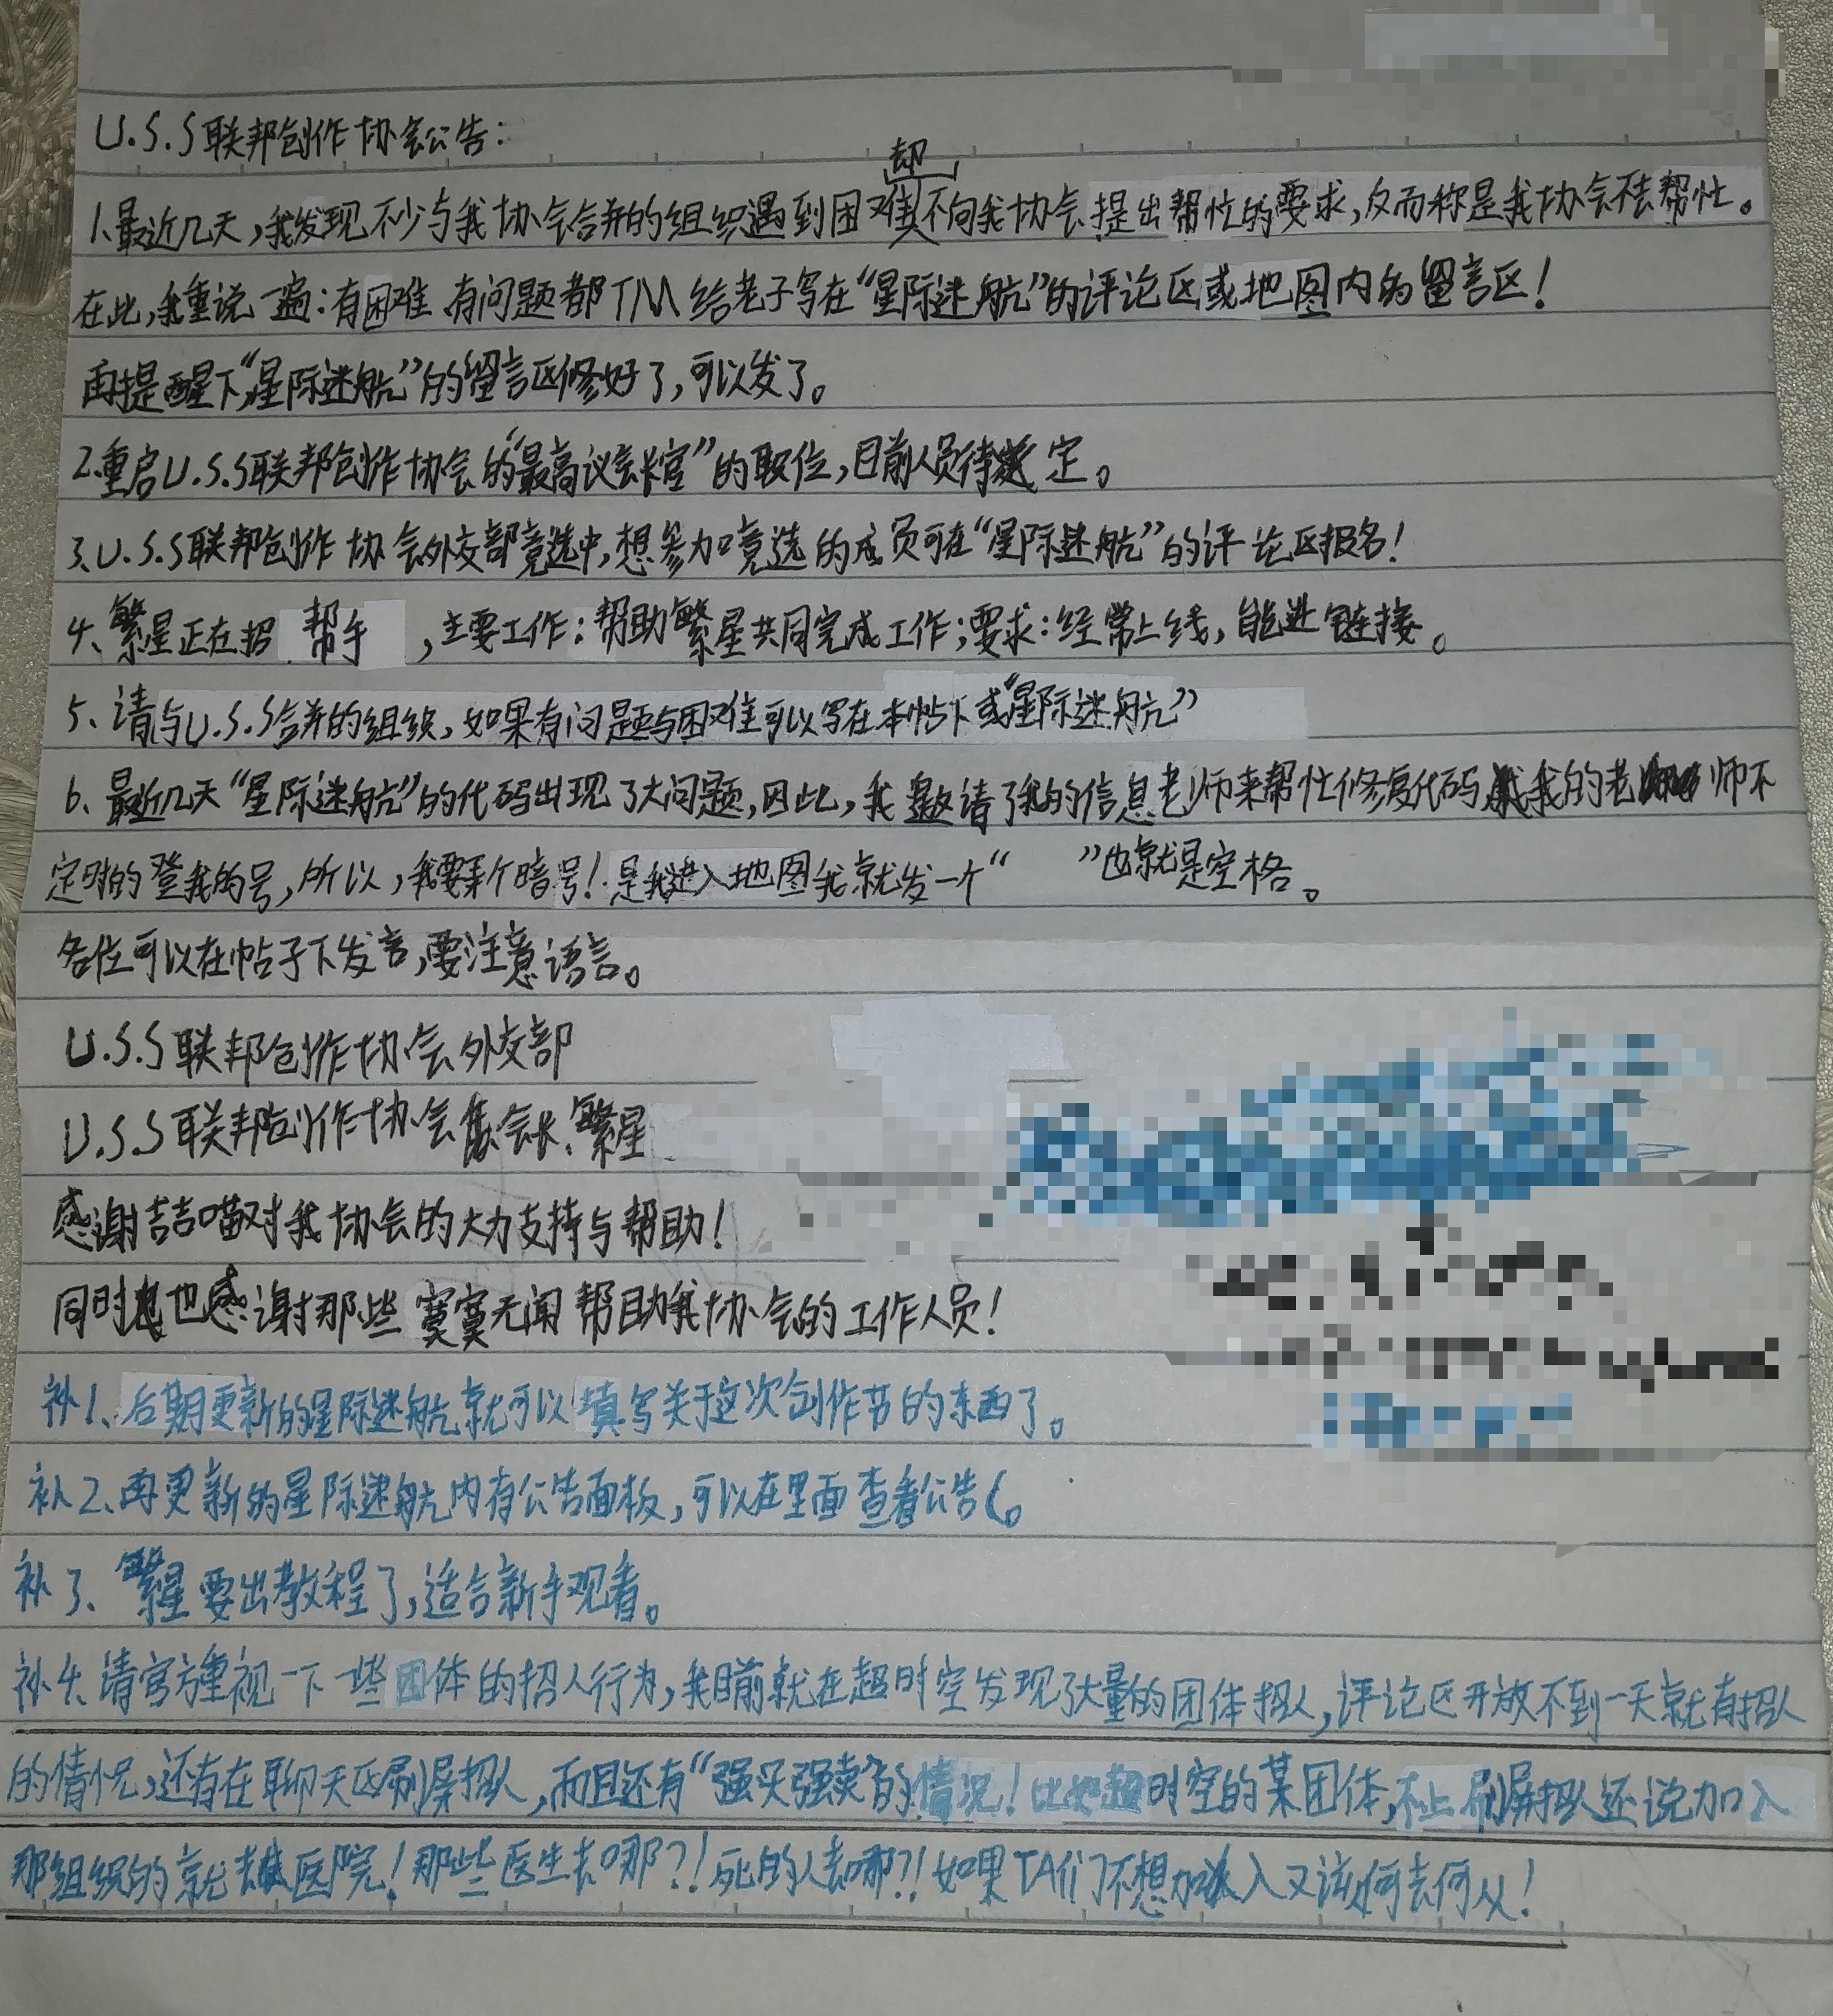 U.S.S联邦创作协会公告：
1.最近几天，我发现不少与我协会合并的组织遇到困难却不向我协会提出帮忙的要求，反而称是我协会不去帮忙。
在此，我重说一遍：有困难有问题都TM给老子写在“星际迷航”的评论区或地图内的留言区！
再提醒下“星际迷航”的留言区修好了，可以发了。
2.重启U.S.S联邦创作协会的“最高议会长官”的职位，目前人员待定。
3、U.S.S联邦创作协会外交部竞选中，想参加竞选的成员可在“星际迷航”的评论区报名！
4、繁星正在招帮手，主要工作：帮助繁星共同完成工作；要求：经常上线，能进链接。
5、请与U.S.S合并的组织，如果有问题与困难可以写在本帖下或“星际迷航”
6、最近几天“星际迷航”的代码出现了大问题，因此，我邀请了我的信息老师来帮忙修复代码，我的老师不
定时的登我的号，所以，我要弄个暗号！是我进入地图我就发一个“ ”也就是空格。
各位可以在帖子下发言，要注意语言。
U.S.S联邦创作协会外交部
U.S.S联邦创作协会会长、繁星
感谢吉吉喵对我协会的大力支持与帮助！
同时也感谢那些寞寞无闻帮助我协会的工作人员！
补1、后期更新的星际迷航就可以填写关于这次创作节的东西了。
补2、再更新的星际迷航内有公告面板，可以在里面查看公告。
补3、繁星要出教程了，适合新手观看。
补4、请官方重视一下一些团体的招人行为，我目前就在超时空发现了大量的团体招人，评论区开放不到一天就有招人
的情况，还有在聊天区刷屏招人，而且还有“强买强卖”的情况！比如超时空的某团体，不止刷屏招人还说加入
那组织的就去医院！那些医生去哪？！死的人去哪？！如果TA们不想加入又该何去何从！